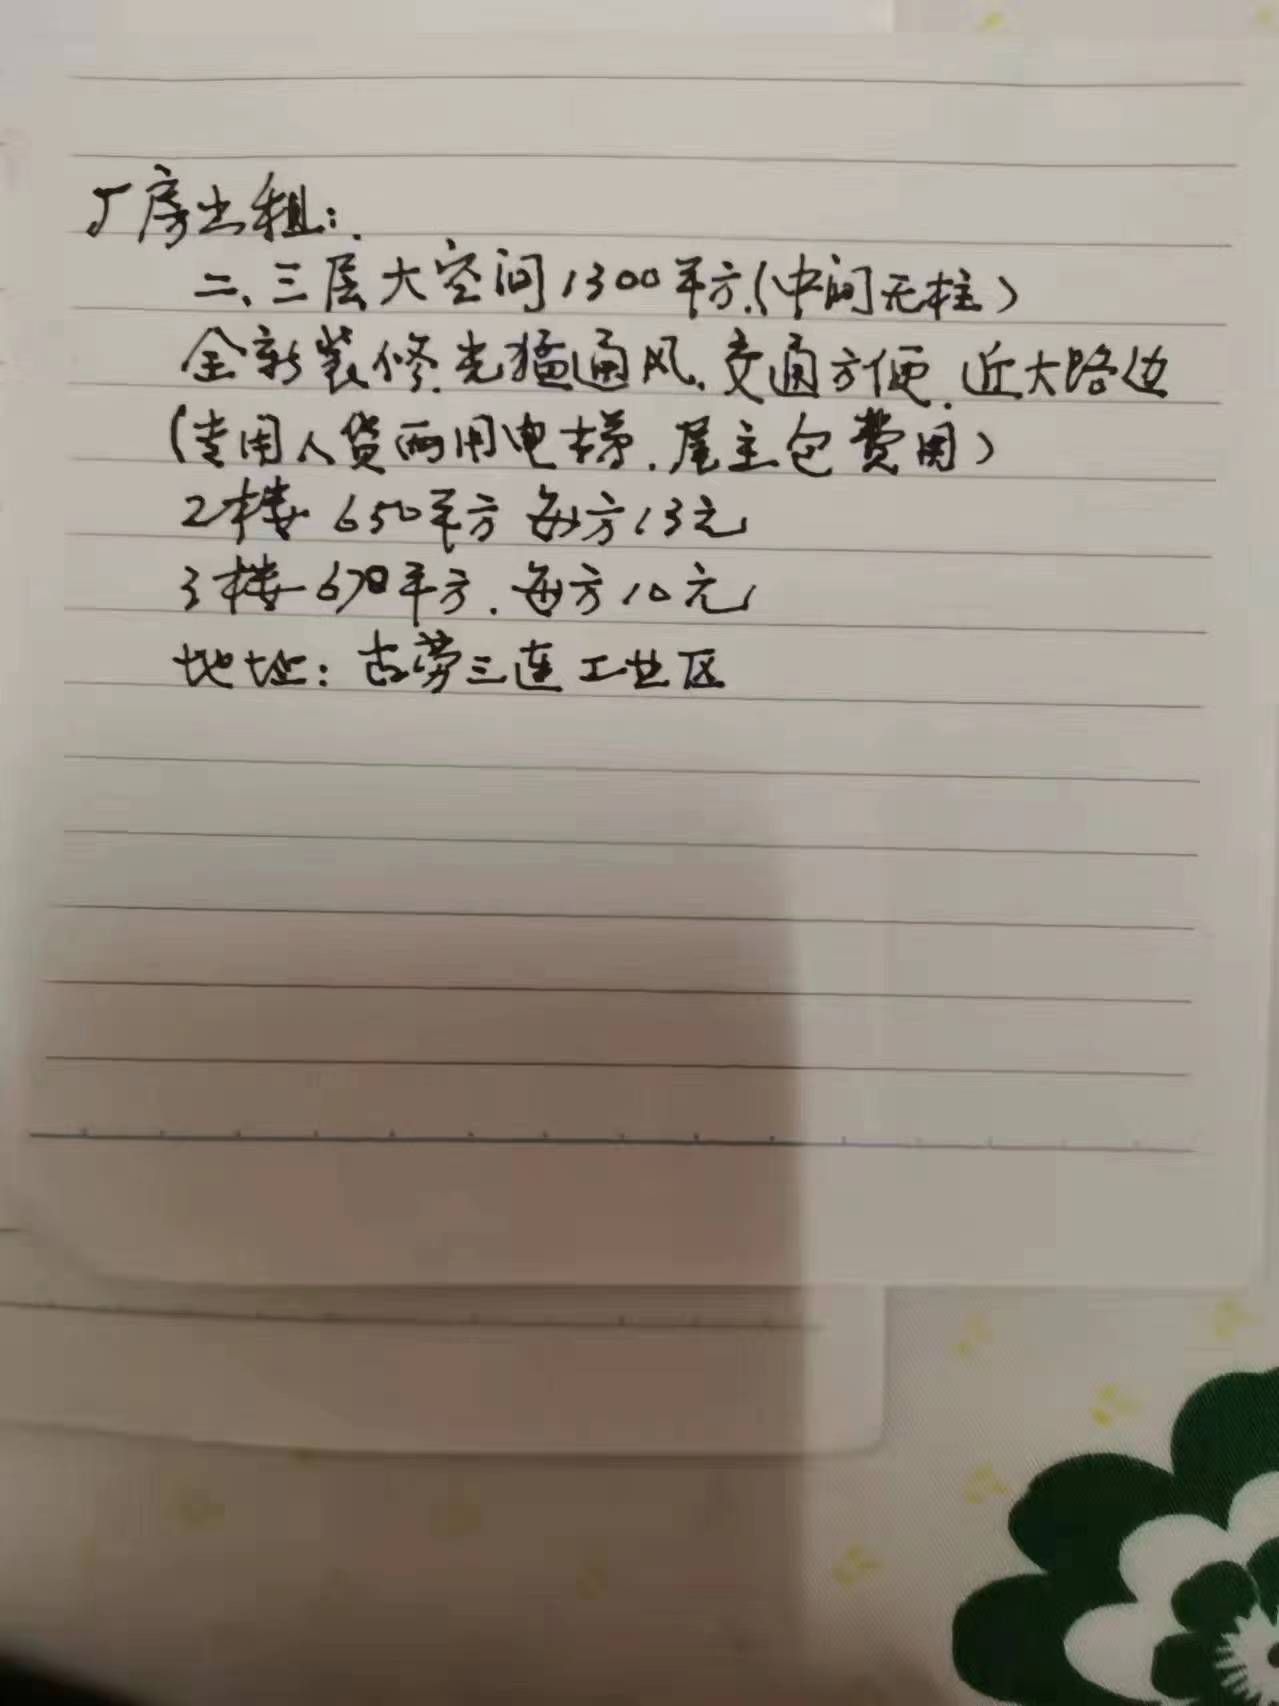 厂房出租:
二、三层大空间1300平方.(中间无柱)
全新装修.光猛通风.交通方便.近大路边
(专用人货两用电梯.屋主包费用)
2楼 650平方 每方13元
3楼 670平方.每方10元
地址:古劳三连工业区